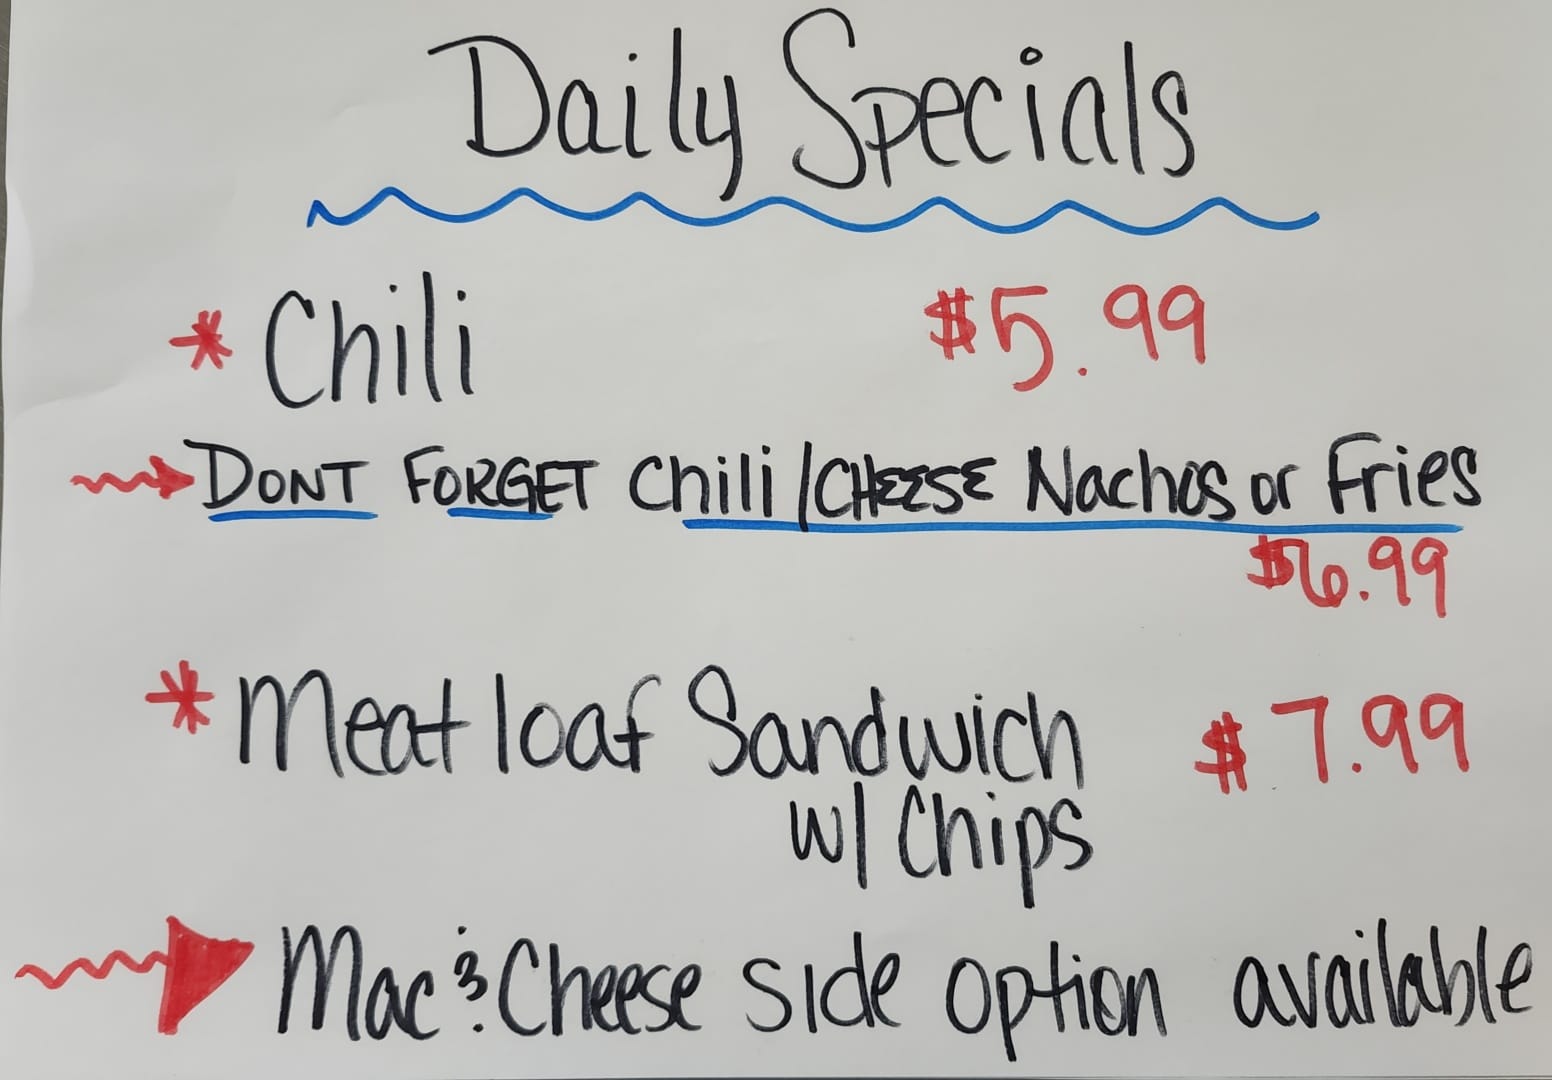 Daily Specials
* Chili $5.99
DONT FORGET Chili/CHEESE Nachos or Fries
$6.99
* Meatloaf Sandwich $7.99
w/ Chips
Mac & Cheese side option available